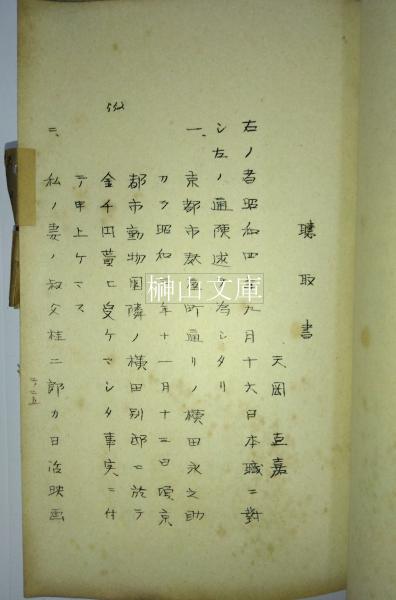 聴取書
天岡直嘉
右ノ者昭和四年九月十六日本職ニ對
シ左ノ通陳述ヲ為シタリ
一、京都市麩屋町通リノ横田永之助
カラ昭和 年十一月十二日頃京
都市動物園隣ノ横田別邸ニ於テ
金千円貰ヒ受ケマシタ事実ニ付
テ申上ケマス
二、私ノ妻ノ叔父桂二郎カ日活映画
榊山文庫